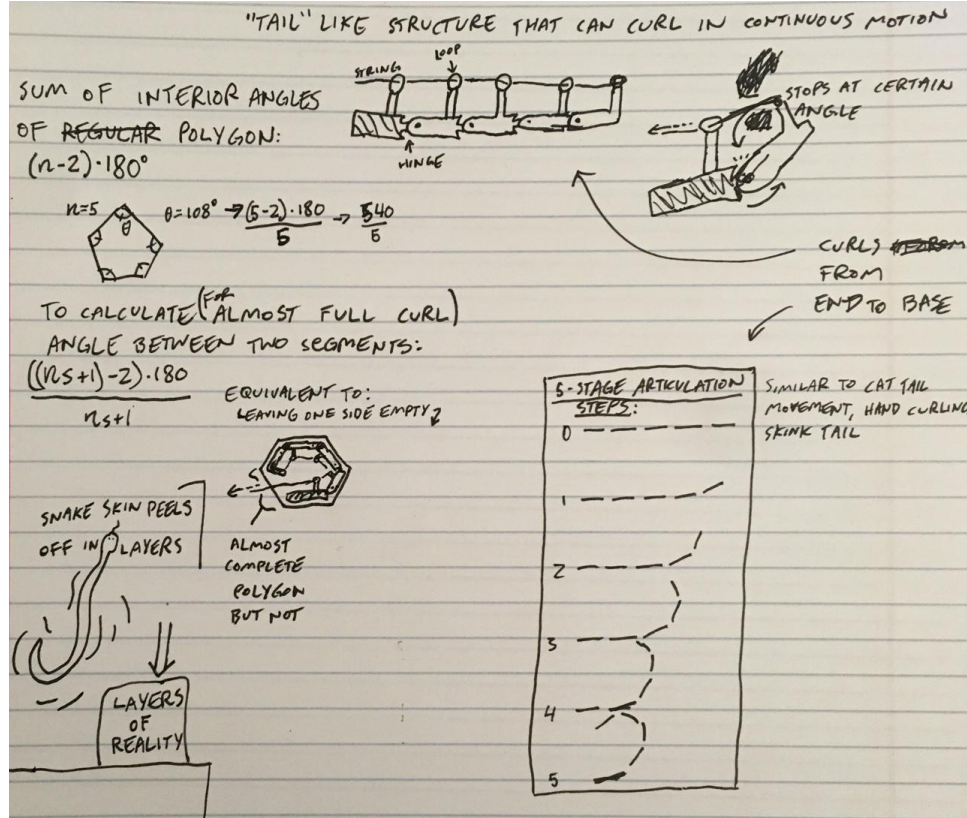 "TAIL" LIKE STRUCTURE THAT CAN CURL IN CONTINUOUS MOTION
STRING
LOOP
HINGE
STOPS AT CERTAIN
ANGLE
SUM OF INTERIOR ANGLES
OF REGULAR POLYGON:
(n-2)·180°
n=5
θ
θ=108° → (5-2)·180/5 → 540/5
CURLS
FROM
END TO BASE
TO CALCULATE (FOR ALMOST FULL CURL)
ANGLE BETWEEN TWO SEGMENTS:
((ns+1)-2)·180
ns+1
EQUIVALENT TO:
LEAVING ONE SIDE EMPTY
ALMOST
COMPLETE
POLYGON
BUT NOT
SNAKE SKIN PEELS
OFF IN LAYERS
LAYERS
OF
REALITY
5-STAGE ARTICULATION
STEPS:
0
1
2
3
4
5
SIMILAR TO CAT TAIL
MOVEMENT, HAND CURLING
SKINK TAIL